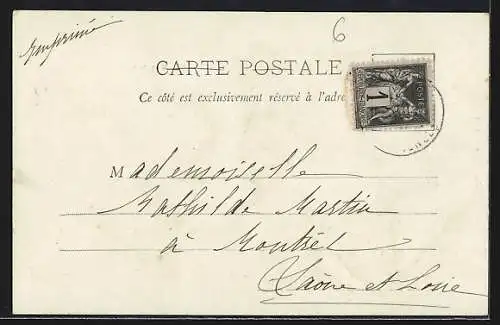 Imprimé
6
CARTE POSTALE
Ce côté est exclusivement réservé à l'adre
POSTES
1
Mademoiselle
Mathilde Martin
à Montret
Saône et Loire